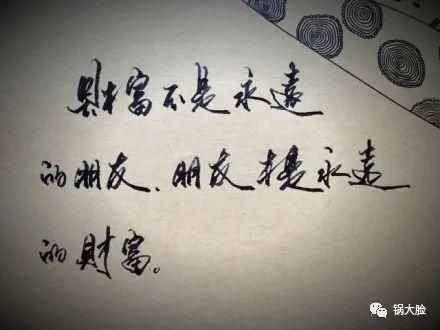 財富不是永遠
的朋友、朋友才是永遠
的財富。
锅大脸